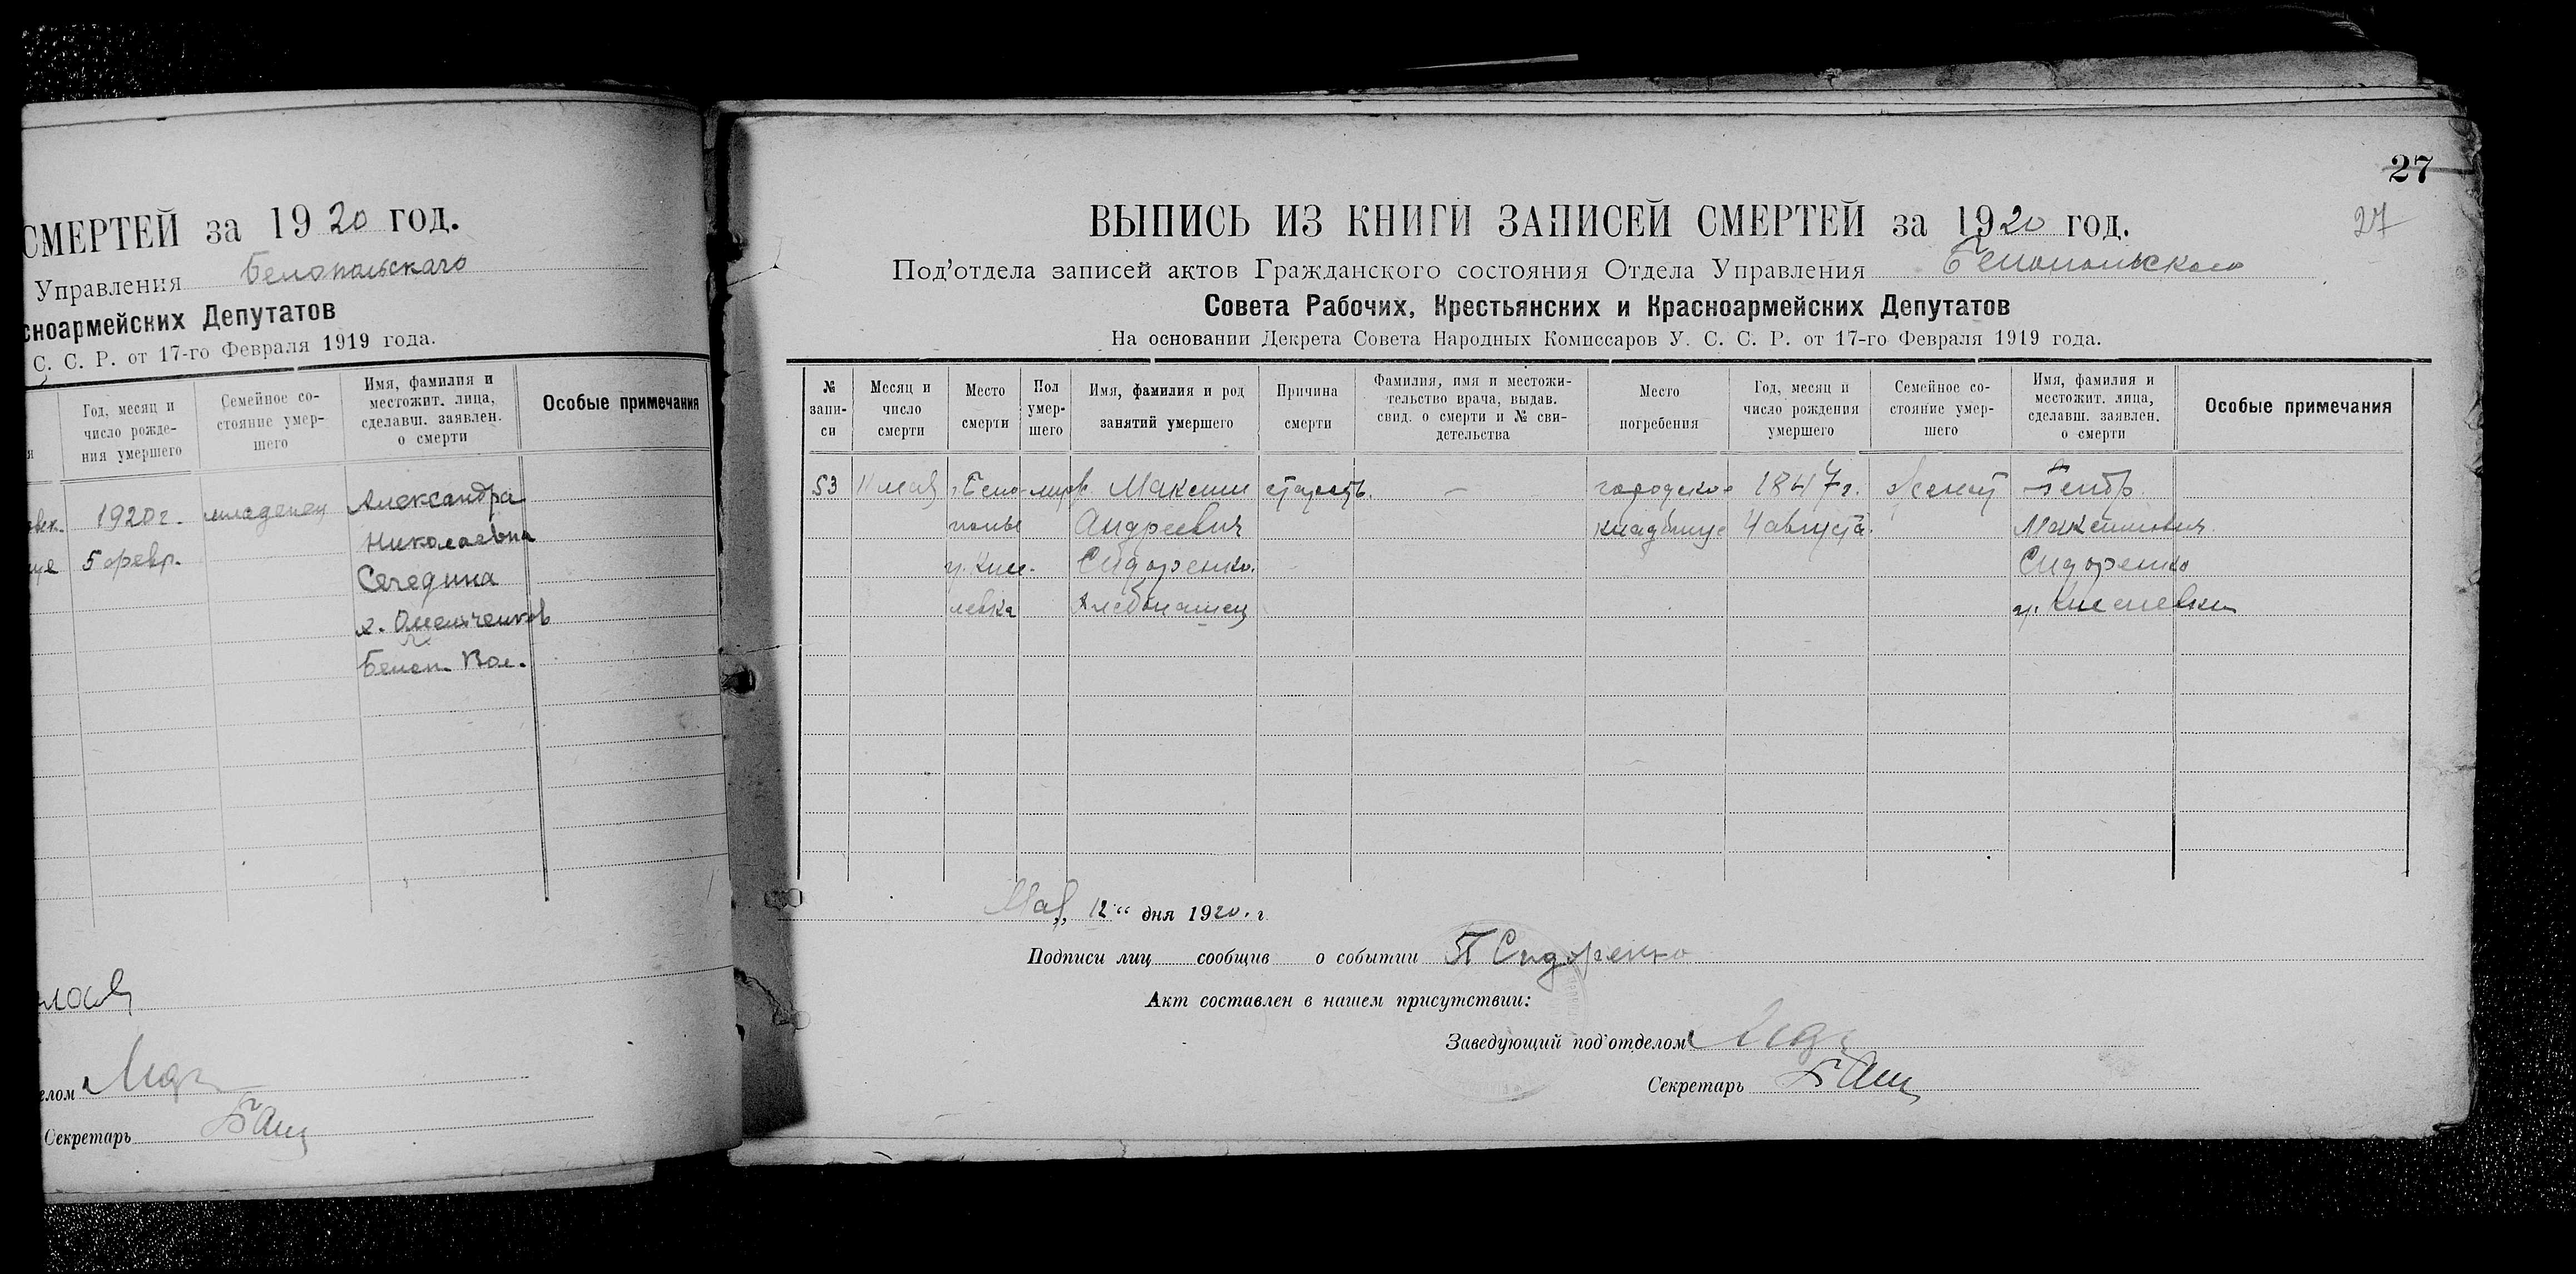 СМЕРТЕЙ за 1920 год.
Управления Белопольскаго
сноармейских Депутатов
С. С. Р. от 17-го Февраля 1919 года.
Год, месяц и число рожде- ния умершего
Семейное со- стояние умер- шего
Имя, фамилия и местожит. лица, сделавш. заявлен. о смерти
Особые примечания
1920 г. младенец Александра
5 февр. Николаевна
Середина
х. Омельченков
Белоп. Вол.
елом
Секретарь
27
27
ВЫПИСЬ ИЗ КНИГИ ЗАПИСЕЙ СМЕРТЕЙ за 1920 год.
Под'отдела записей актов Гражданского состояния Отдела Управления Белопольского
Совета Рабочих, Крестьянских и Красноармейских Депутатов
На основании Декрета Совета Народных Комиссаров У. С. С. Р. от 17-го Февраля 1919 года.
№ запи- си
Месяц и число смерти
Место смерти
Пол умер- шего
Имя, фамилия и род занятий умершего
Причина смерти
Фамилия, имя и местожи- тельство врача, выдав. свид. о смерти и № сви- детельства
Место погребения
Год, месяц и число рождения умершего
Семейное со- стояние умер- шего
Имя, фамилия и местожит. лица, сделавш. заявлен. о смерти
Особые примечания
53 11 мая г. Бело- Максим старость. — городское 1847 г. женат Петр
полье Андреевич кладбище 4 августа Максимович
Сидоренко. Сидоренко
левка Хлебопашец
Мая „12“ дня 1920. г.
Подписи лиц сообщив о событии П Сидоренко
Акт составлен в нашем присутствии:
Заведующий под'отделом
Секретарь